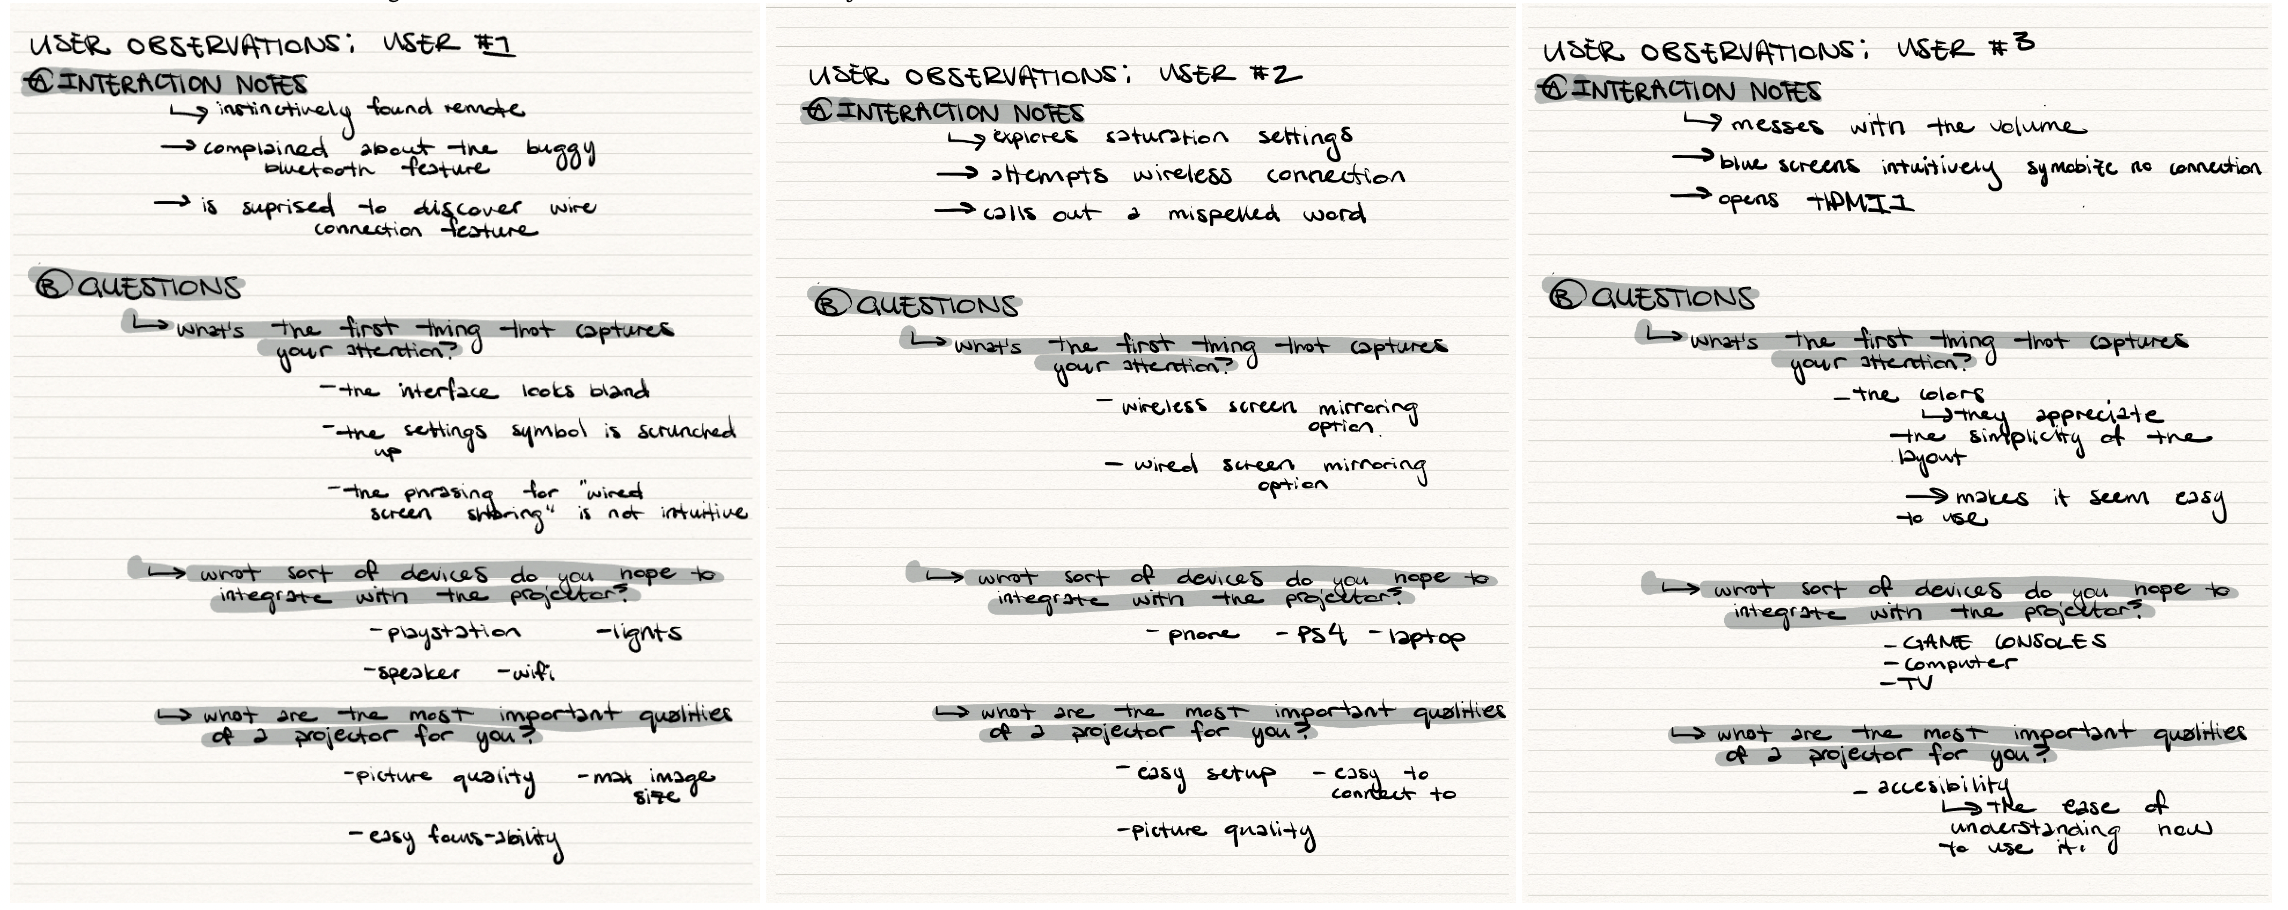 USER OBSERVATIONS: USER #1
Ⓐ INTERACTION NOTES
↳ instinctively found remote
→ complained about the buggy
bluetooth feature
→ is suprised to discover wire
connection feature
Ⓑ QUESTIONS
↳ what's the first thing that captures
your attention?
- the interface looks bland
- the settings symbol is scrunched
up
- the phrasing for "wired
screen sharing" is not intuitive
↳ what sort of devices do you hope to
integrate with the projector?
- playstation - lights
- speaker - wifi
↳ what are the most important qualities
of a projector for you?
- picture quality - max image
size
- easy focus-ability
USER OBSERVATIONS: USER #2
Ⓐ INTERACTION NOTES
↳ explores saturation settings
→ attempts wireless connection
→ calls out a mispelled word
Ⓑ QUESTIONS
↳ what's the first thing that captures
your attention?
- wireless screen mirroring
option.
- wired screen mirroring
option
↳ what sort of devices do you hope to
integrate with the projector?
- phone - PS4 - laptop
↳ what are the most important qualities
of a projector for you?
- easy setup - easy to
connect to
- picture quality
USER OBSERVATIONS: USER #3
Ⓐ INTERACTION NOTES
↳ messes with the volume
→ blue screens intuitively symobize no connection
→ opens HDMI1
Ⓑ QUESTIONS
↳ what's the first thing that captures
your attention?
- the colors
↳ they appreciate
the simplicity of the
layout
→ makes it seem easy
to use
↳ what sort of devices do you hope to
integrate with the projector?
- GAME CONSOLES
- computer
- TV
↳ what are the most important qualities
of a projector for you?
- accesibility
↳ the ease of
understanding how
to use it.